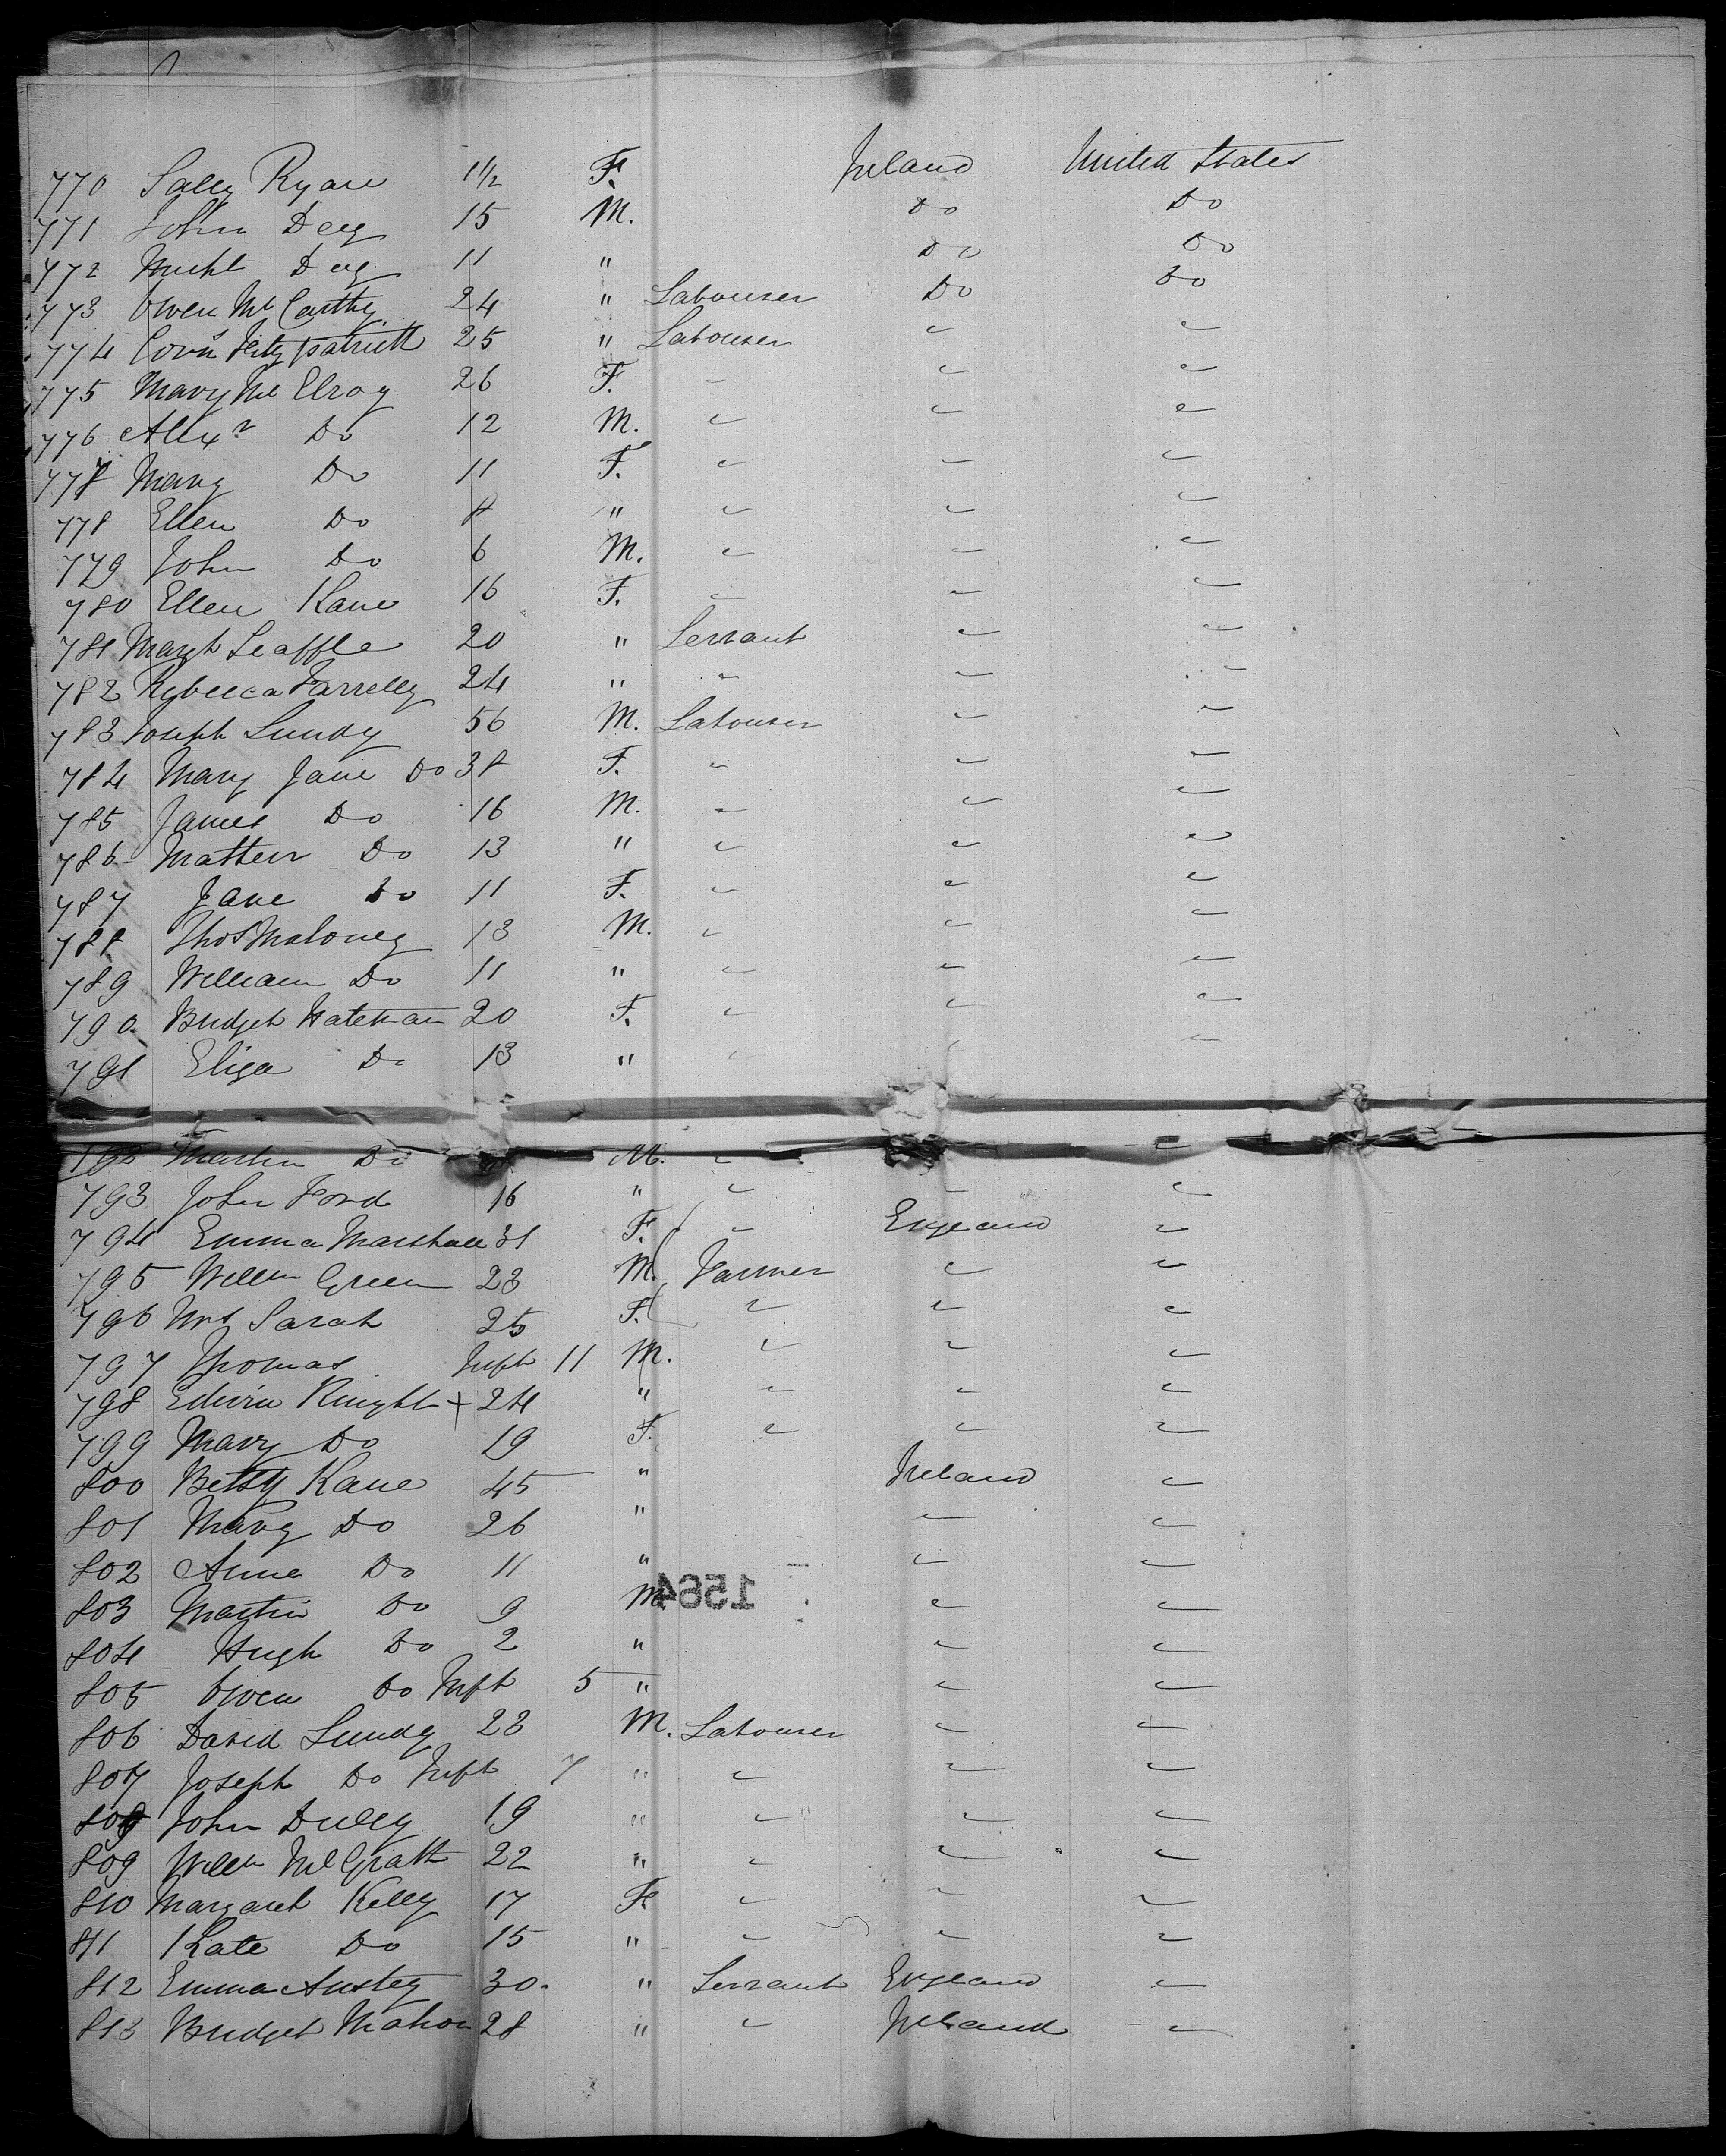 770 Sally Ryan 1 1/2 F. Ireland United States
771 John Deey 15 M. Do Do
772 Michl Deey 11 " Do Do
773 Owen McCarthy 24 " Labourer Do Do
774 Corns Fitzpatrick 25 " Labourer " "
775 Mary McElroy 26 F. " " "
776 Alexr Do 12 M. " " "
777 Mary Do 11 F. " " "
778 Ellen Do 8 " " " "
779 John Do 6 M. " " "
780 Ellen Kane 16 F. " " "
781 Margt Leaffle 20 " Servant " "
782 Rebecca Farrelly 24 " " " "
783 Joseph Lundy 56 M. Labourer " "
784 Mary Jane Do 38 F. " " "
785 James Do 16 M. " " "
786 Mattew Do 13 " " " "
787 Jane Do 11 F. " " "
788 Thos Maloney 13 M. " " "
789 William Do 11 " " " "
790 Bridget Bateman 20 F. " " "
791 Eliza Do 13 " " " "
792 Martin Do M. " "
793 John Ford 16 " " " "
794 Emma Marshall 31 F. " England "
795 Willm Green 23 M. Farmer " "
796 Mrs Sarah 25 F. " " "
797 Thomas Inft 11 M. " " "
798 Edwin Knight + 24 " " " "
799 Mary Do 19 F. " " "
800 Betsy Kane 45 " Ireland "
801 Mary Do 26 " " "
802 Anne Do 11 " " "
803 Martin Do 9 M. " "
1564
804 Hugh Do 2 " " "
805 Owen Do Inft 5 " " "
806 David Lundy 23 M. Labourer " "
807 Joseph Do Inft 7 " " " "
808 John Duley 19 " " " "
809 Willm McGrath 22 " " " "
810 Margaret Kelly 17 F. " " "
811 Kate Do 15 " " " "
812 Emma Anstey 30. " Servant England "
813 Bridget Mahon 28 " " Ireland "